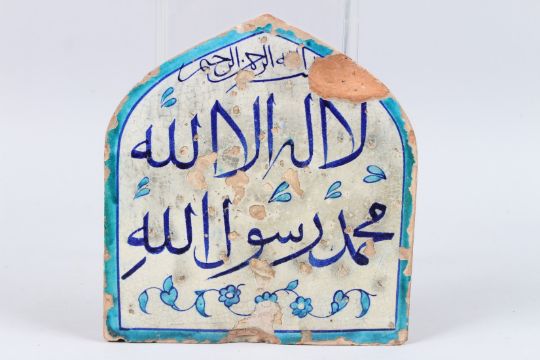 الله الرحمن الرحيم
لا اله الا الله
محمد رسول الله